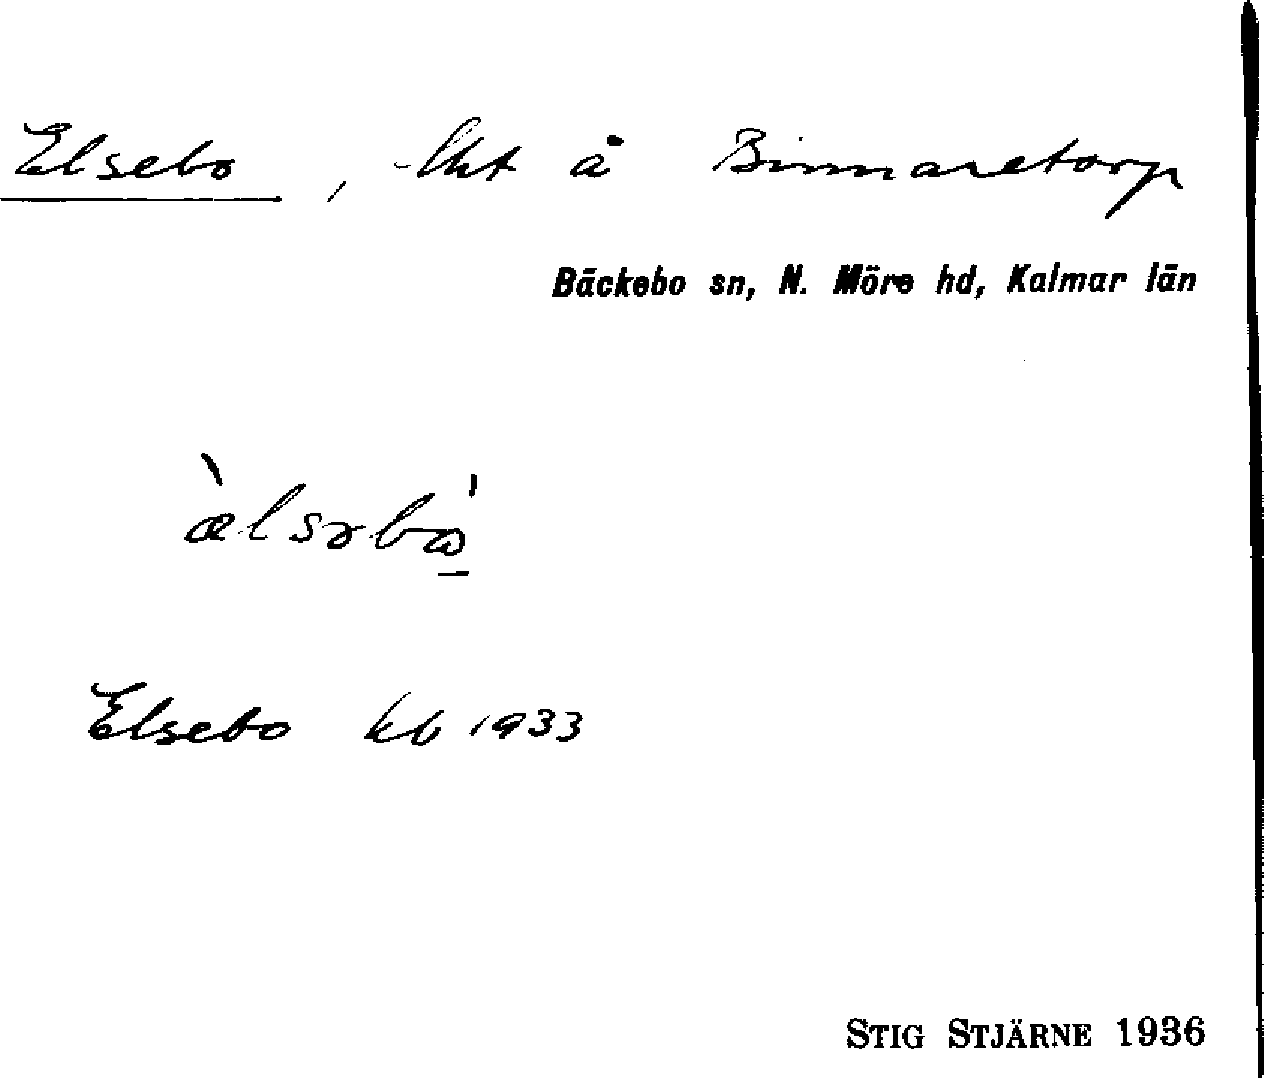 Elsebo, lht å Binnaretorp
Bäckebo sn, N. Möre hd, Kalmar län
Elsebo kb 1933
STIG STJÄRNE 1936